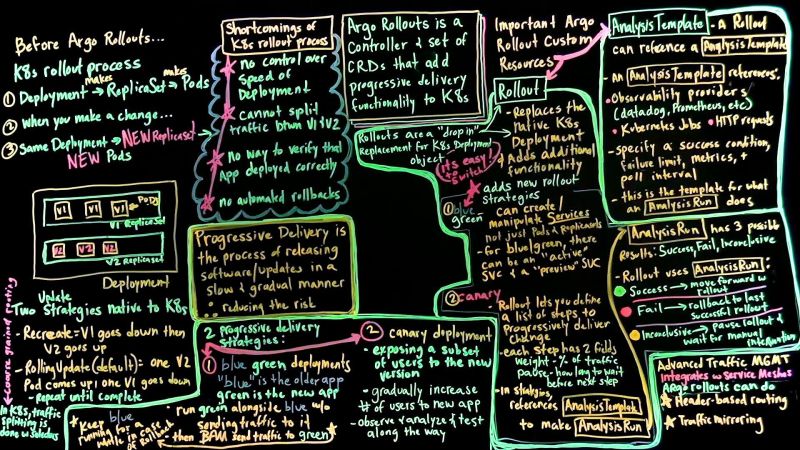 Before Argo Rollouts...
K8s rollout process
makes makes
① Deployment → ReplicaSet → Pods
② When you make a change...
③ Same Deployment → NEW Replicaset
NEW Pods
V1 V1 V1 ← Pods
V1 ReplicaSet
V2 V2 V2
V2 Replicaset
Deployment
Update
Two Strategies native to K8s
- Recreate = V1 goes down then
V2 goes up
- RollingUpdate (default): one V2
Pod comes up, one V1 goes down
- Repeat until complete
coarse grained routing
In K8s, traffic
splitting is
done w/ selectors
Shortcomings of
K8s rollout process
no control over
speed of
Deployment
cannot split
traffic btwn V1 & V2
no way to verify that
App deployed correctly
no automated rollbacks
Progressive Delivery is
the process of releasing
software/updates in a
slow & gradual manner
: reducing the risk
2 Progressive delivery
strategies:
① blue green deployments
"blue" is the older app
green is the new app
- run green alongside blue w/o
sending traffic to it
then BAM send traffic to green
keep blue
running for a
while in case
of Rollback
② canary deployment
- exposing a subset
of users to the new
version
- gradually increase
# of users to new app
- observe & analyze & test
along the way
Argo Rollouts is a
Controller & set of
CRDs that add
progressive delivery
functionality to K8s
Rollouts are a "drop in"
Replacement for K8s Deployment
object
it's easy to
switch!
Important Argo
Rollout Custom
Resources
Rollout
- Replaces the
native K8s
Deployment
& Adds additional
functionality
adds new rollout
strategies
① blue
green
- can create/
manipulate Services
not just Pods & Replicasets
- for blue/green, there
can be an "active"
SVC & a "preview" SVC
② canary
- Rollout lets you define
a list of steps to
Progressively deliver
change
- each step has 2 fields
weight - % of traffic
pause - how long to wait
before next step
- In strategies,
references AnalysisTemplate
to make AnalysisRun
AnalysisTemplate - a Rollout
can reference a AnalysisTemplate
- an AnalysisTemplate references:
Observability providers
(datadog, Prometheus, etc)
Kubernetes Jobs HTTP requests
- specify a success condition,
failure limit, metrics, +
poll interval
- this is the template for what
an AnalysisRun does
AnalysisRun has 3 possible
Results: Success, Fail, Inconclusive
- Rollout uses AnalysisRun:
Success → move forward w/
rollout
Fail → rollback to last
successful rollout
Inconclusive → pause rollout &
wait for manual
intervention
Advanced Traffic MGMT
Integrates w/ Service Meshes
Argo rollouts can do
Header-based routing
Traffic mirroring